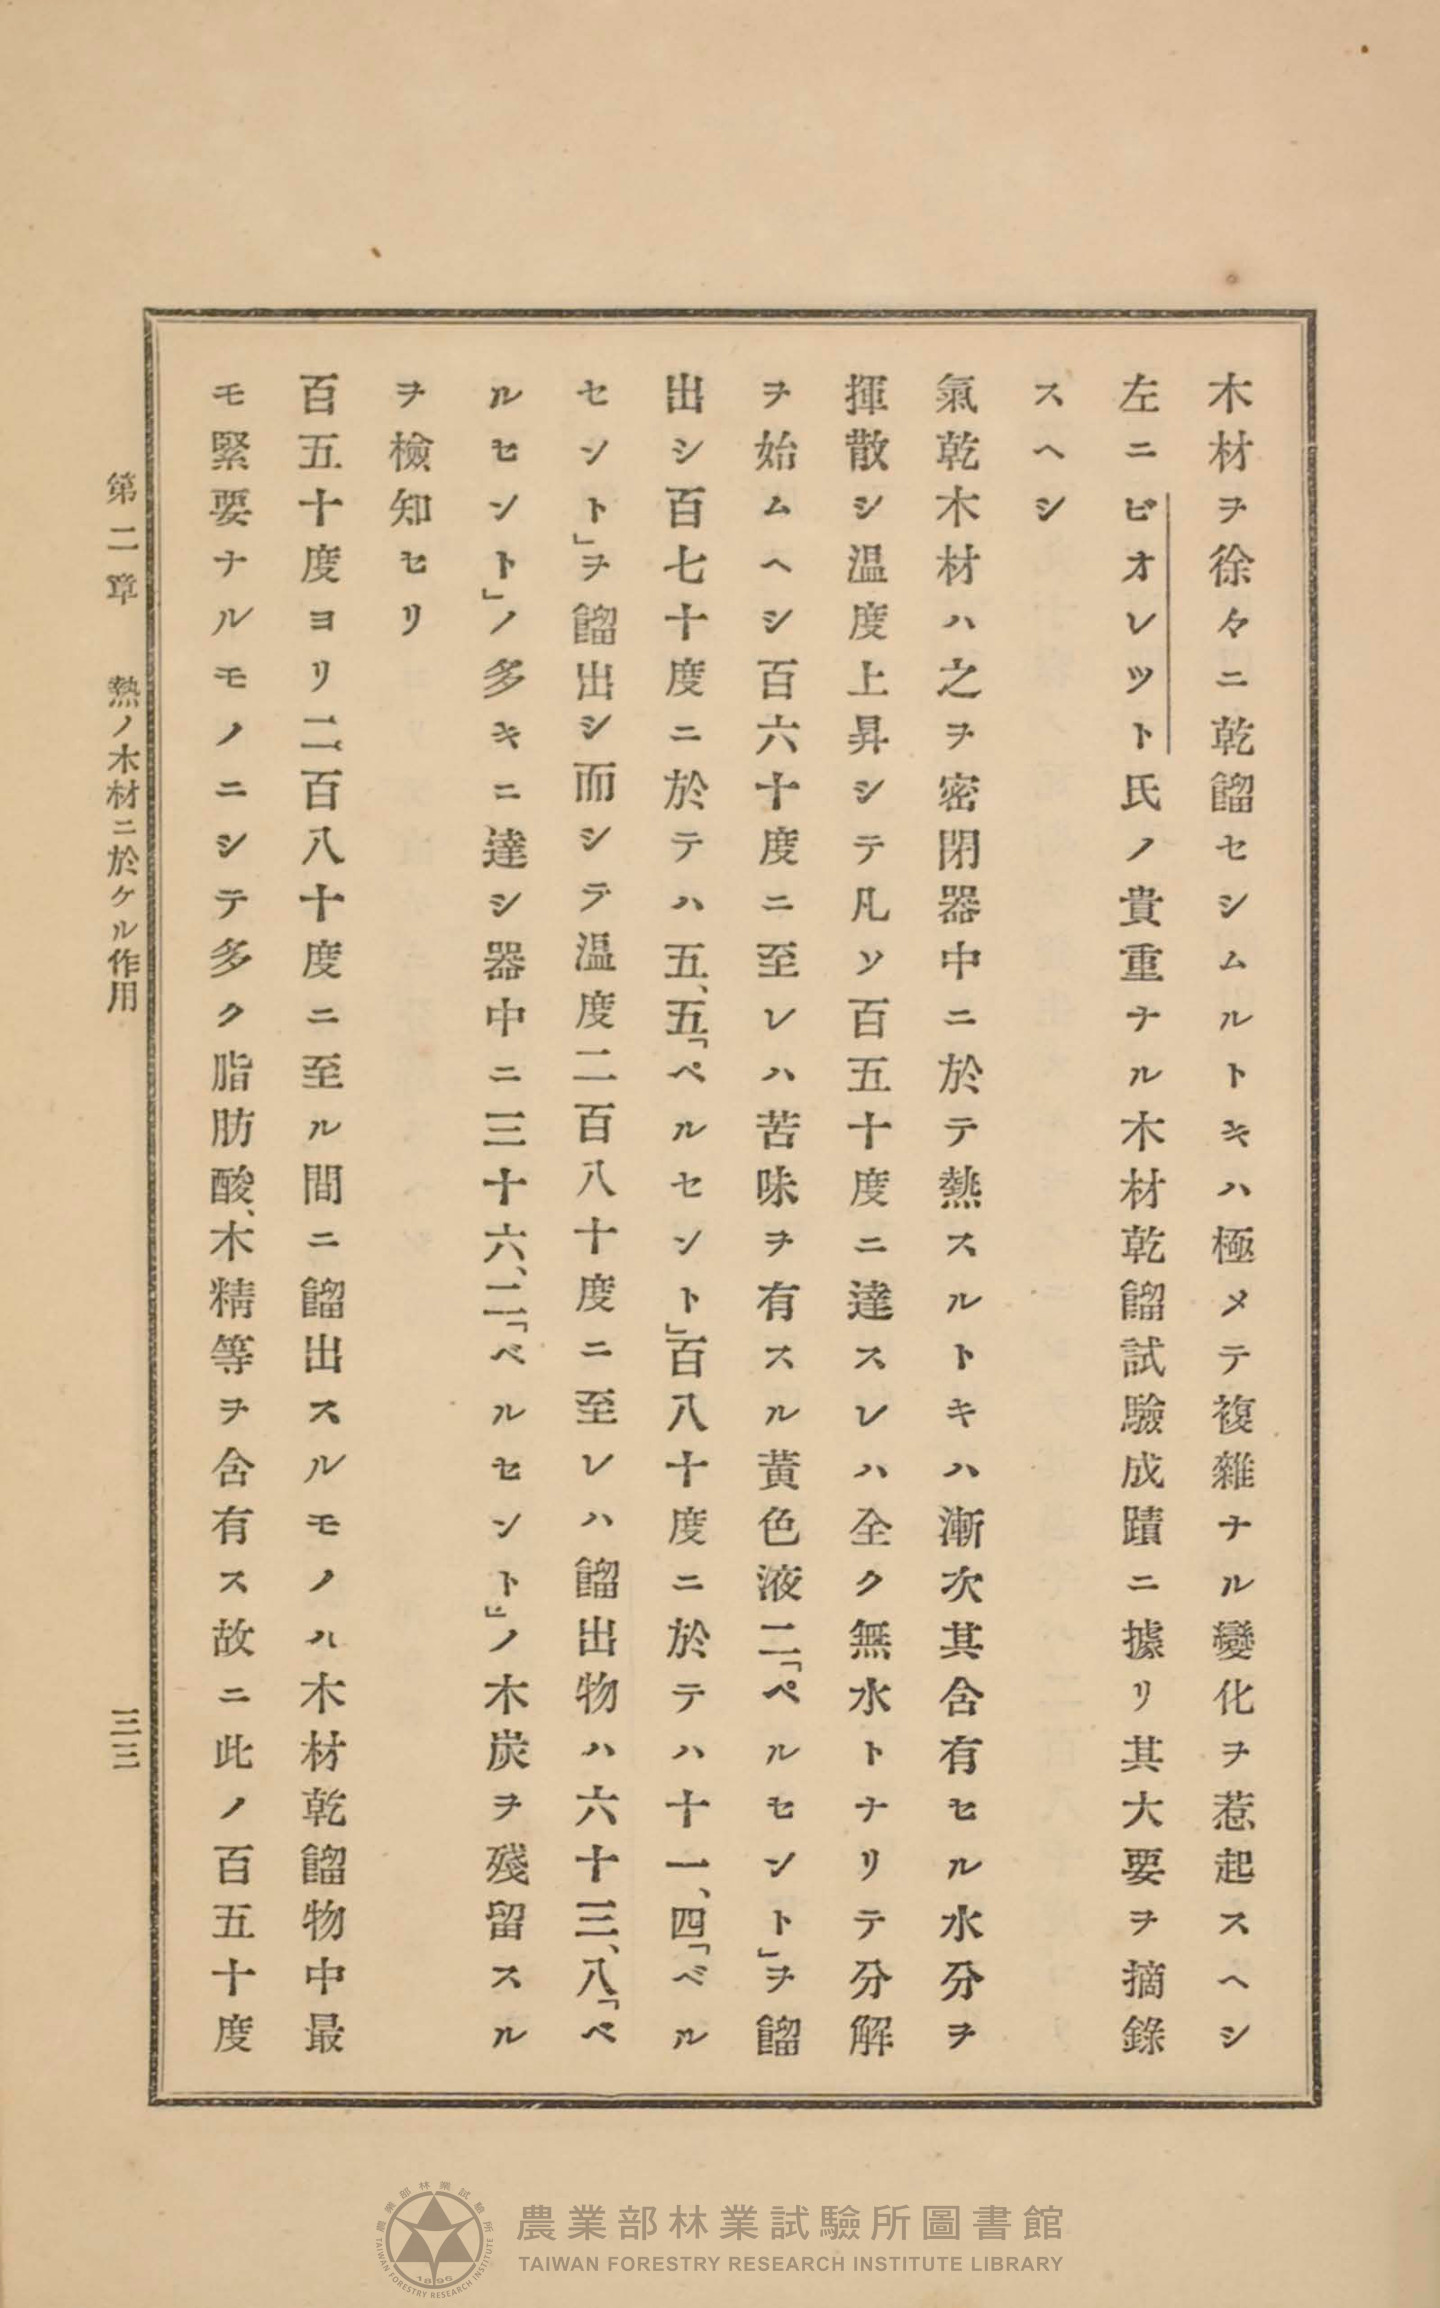 木材ヲ徐々ニ乾餾セシムルトキハ極メテ複雜ナル變化ヲ惹起スヘシ
左ニビオレツト氏ノ貴重ナル木材乾餾試驗成蹟ニ據リ其大要ヲ摘錄
スヘシ
氣乾木材ハ之ヲ密閉器中ニ於テ熱スルトキハ漸次其含有セル水分ヲ
揮散シ温度上昇シテ凡ソ百五十度ニ達スレハ全ク無水トナリテ分解
ヲ始ムヘシ百六十度ニ至レハ苦味ヲ有スル黃色液二「ペルセント」ヲ餾
出シ百七十度ニ於テハ五、五「ペルセント」百八十度ニ於テハ十一、四「ペル
セント」ヲ餾出シ而シテ温度二百八十度ニ至レハ餾出物ハ六十三、八「ペ
ルセント」ノ多キニ達シ器中ニ三十六、二「ペルセント」ノ木炭ヲ殘留スル
ヲ檢知セリ
百五十度ヨリ二百八十度ニ至ル間ニ餾出スルモノハ木材乾餾物中最
モ緊要ナルモノニシテ多ク脂肪酸、木精等ヲ含有ス故ニ此ノ百五十度
第二章 熱ノ木材ニ於ケル作用 三三
農業部林業試驗所圖書館
TAIWAN FORESTRY RESEARCH INSTITUTE LIBRARY
農業部林業試驗所
TAIWAN FORESTRY RESEARCH INSTITUTE
1896